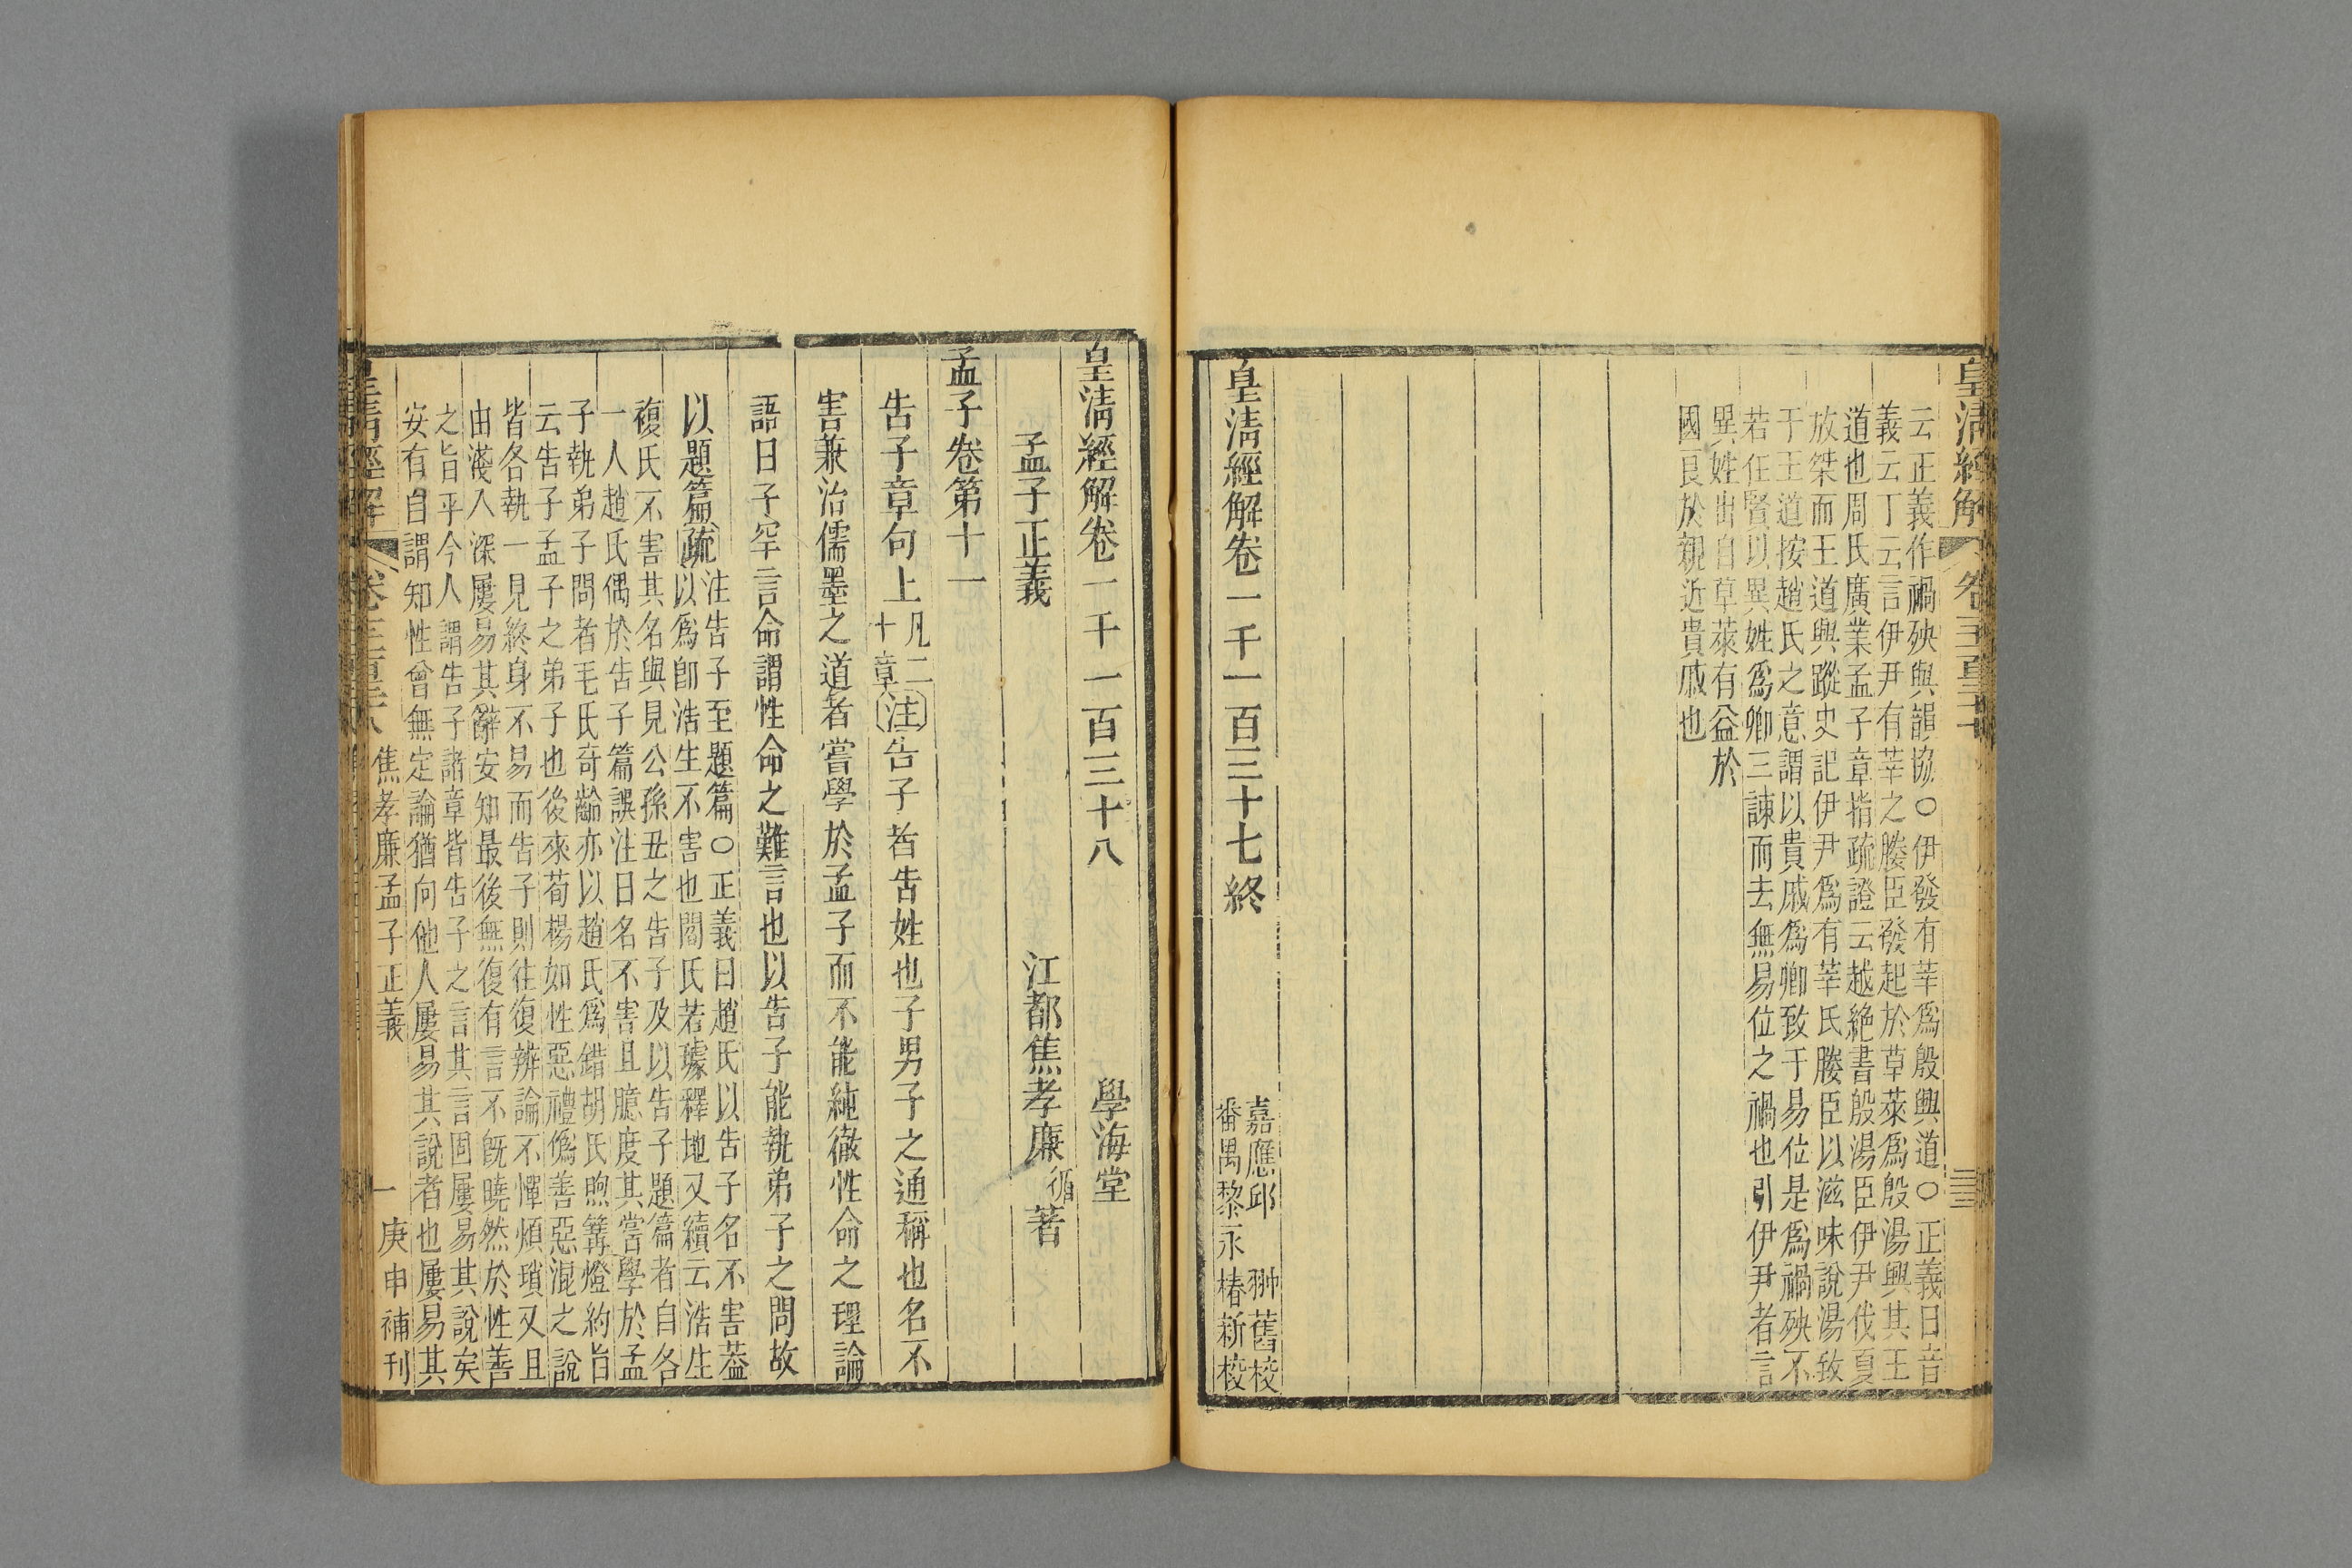 皇清經解
云正義作禍殃與韻協○伊發有莘爲殷興道○正義曰音
義云丁云言伊尹有莘之媵臣發起於草萊爲殷湯興其王
道也周氏廣業孟子章指疏證云越絶書殷湯臣伊尹伐夏
放桀而王道興蹤史記伊尹爲有莘氏媵臣以滋味說湯致
于王道按趙氏之意謂以貴戚爲卿致于易位是爲禍殃不
若任賢以異姓爲卿三諫而去無易位之禍也引伊尹者言
異姓出自草萊有益於
國良於親近貴戚也
皇清經解卷一千一百三十七終
嘉應邱 翀舊校
番禺黎永椿新校
皇清經解卷一千一百三十八
學海堂
孟子正義
江都焦孝廉循著
孟子卷第十一
告子章句上凡二十章注告子者告姓也子男子之通稱也名不
害兼治儒墨之道者嘗學於孟子而不能純徹性命之理論
語曰子罕言命謂性命之難言也以告子能執弟子之問故
以題篇疏
注告子至題篇○正義曰趙氏以告子名不害葢
以爲卽浩生不害也閻氏若璩釋地又續云浩生
複氏不害其名與見公孫丑之告子及以告子題篇者自各
一人趙氏偶於告子篇誤注曰名不害且臆度其嘗學於孟
子執弟子問者毛氏奇齡亦以趙氏爲錯胡氏煦篝燈約旨
云告子孟子之弟子也後來荀楊如性惡禮僞善惡混之說
皆各執一見終身不易而告子則往復辨論不憚煩瑣又且
由淺入深屢易其辭安知最後無復有言不旣曉然於性善
之旨乎今人謂告子諸章皆告子之言其言固屢易其說矣
安有自謂知性曾無定論猶向他人屢易其說者也屢易其
皇清經解
焦孝廉孟子正義
一
庚申補刊